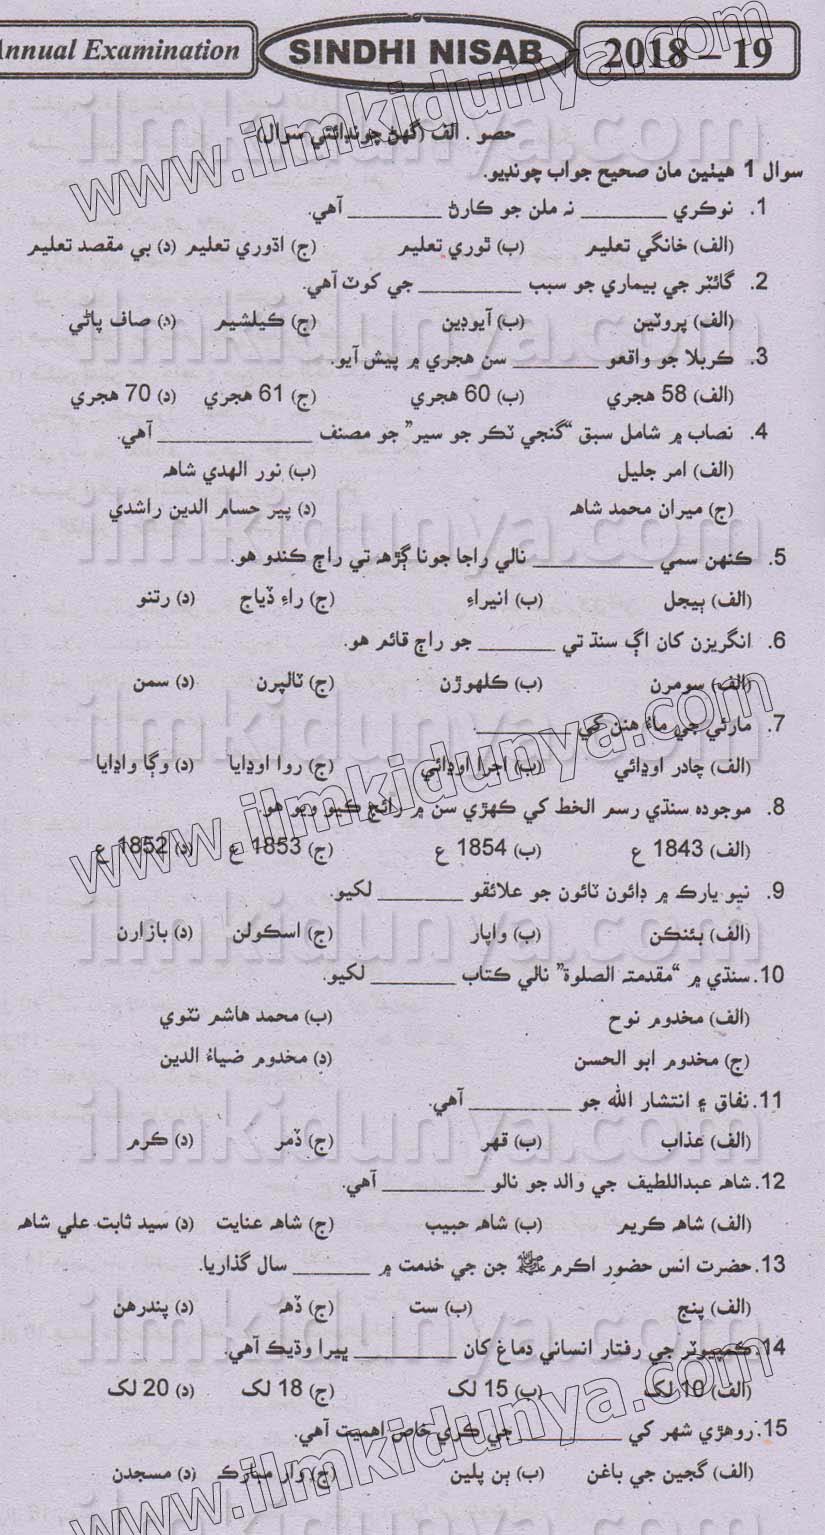 Annual Examination SINDHI NISAB 2018 – 19
حصو . الف (گھڻ چونڊائتي سوال)
سوال 1 هيٺين مان صحيح جواب چونڊيو.
1. نوڪري ________ نہ ملن جو ڪارڻ ________ آهي.
(الف) خانگي تعليم (ب) ٿوري تعليم (ج) اڌوري تعليم (د) بي مقصد تعليم
2. گائٽر جي بيماري جو سبب ________ جي کوٽ آهي.
(الف) پروٽين (ب) آيوڊين (ج) ڪيلشيم (د) صاف پاڻي
3. ڪربلا جو واقعو ________ سن هجري ۾ پيش آيو.
(الف) 58 هجري (ب) 60 هجري (ج) 61 هجري (د) 70 هجري
4. نصاب ۾ شامل سبق “گنجي ٽڪر جو سير” جو مصنف ________ آهي.
(الف) امر جليل (ب) نور الهدي شاهہ
(ج) ميران محمد شاهہ (د) پير حسام الدين راشدي
5. ڪنهن سمي ________ نالي راجا جونا ڳڙهہ تي راڄ ڪندو هو.
(الف) ٻيجل (ب) انيراءِ (ج) راءِ ڏياچ (د) رتنو
6. انگريزن کان اڳ سنڌ تي ________ جو راڄ قائم هو.
(الف) سومرن (ب) ڪلهوڙن (ج) ٽالپرن (د) سمن
7. مارئي جي ماءُ هنن کي ________.
(الف) چادر اوڍائي (ب) اجرا اوڍائي (ج) روا اوڍايا (د) وڳا واڍايا
8. موجوده سنڌي رسم الخط کي ڪهڙي سن ۾ رائج ڪيو ويو هو.
(الف) 1843 ع (ب) 1854 ع (ج) 1853 ع (د) 1852 ع
9. نيو يارڪ ۾ ڊائون ٽائون جو علائقو ________ لکيو.
(الف) بئنڪن (ب) واپار (ج) اسڪولن (د) بازارن
10. سنڌي ۾ “مقدمتہ الصلوة” نالي ڪتاب ________ لکيو.
(الف) مخدوم نوح (ب) محمد هاشم ٺٽوي
(ج) مخدوم ابو الحسن (د) مخدوم ضياءُ الدين
11. نفاق ۽ انتشار الله جو ________ آهي.
(الف) عذاب (ب) قهر (ج) ڏمر (د) ڪرم
12. شاهہ عبداللطيف جي والد جو نالو ________ آهي.
(الف) شاهہ ڪريم (ب) شاهہ حبيب (ج) شاهہ عنايت (د) سيد ثابت علي شاهہ
13. حضرت انس حضور اڪرم ﷺ جن جي خدمت ۾ ________ سال گذاريا.
(الف) پنج (ب) ست (ج) ڏهہ (د) پندرهن
14. ڪمپيوٽر جي رفتار انساني دماغ کان ________ ڀيرا وڌيڪ آهي.
(الف) 10 لک (ب) 15 لک (ج) 18 لک (د) 20 لک
15. روهڙي شهر کي ________ جي ڪري خاص اهميت آهي.
(الف) گجين جي باغن (ب) ٻن پلين (ج) وار مبارڪ (د) مسجدن
www.ilmkidunya.com
www.ilmkidunya.com
www.ilmkidunya.com